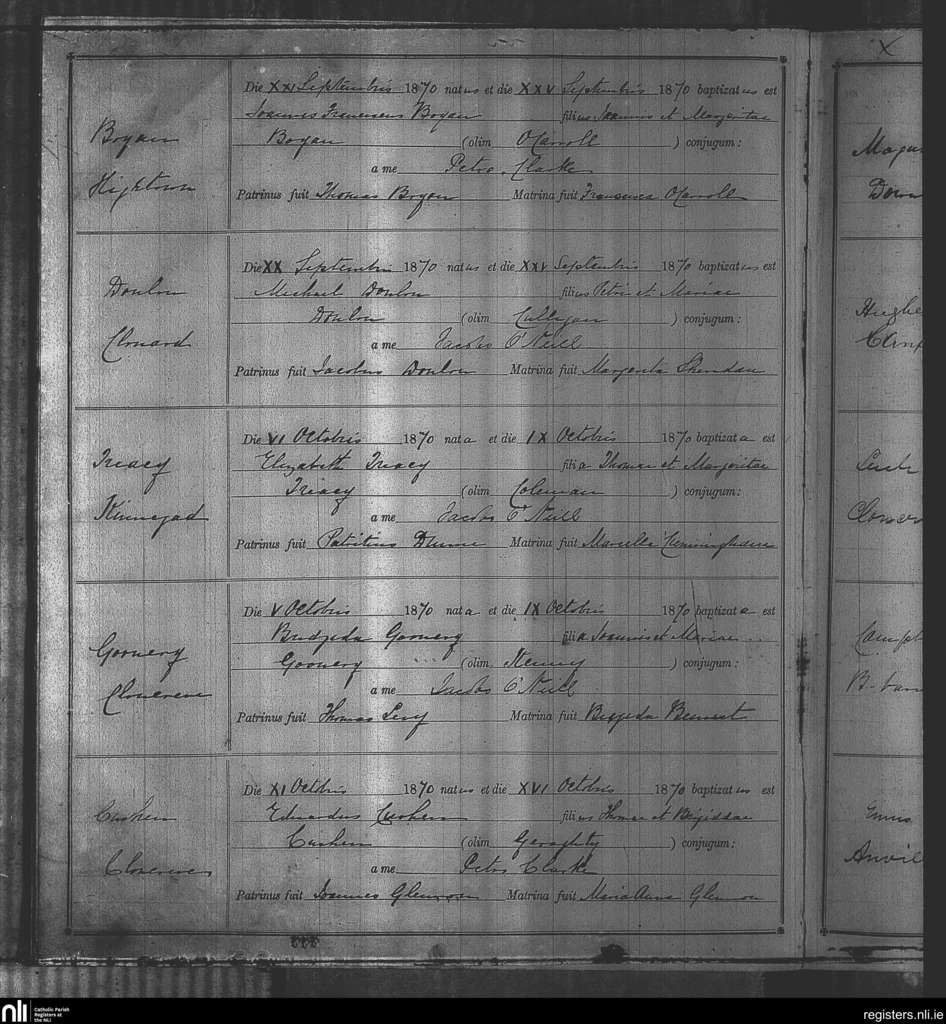 Boyan
Hightown
Die XXI Septembris 1870 natus et die XXV Septembris 1870 baptizatus est
Joannes Franciscus Boyan filius Joannis et Margaritae
Boyan (olim O'Carroll ) conjugum:
a me Petro Clarke
Patrinus fuit Thomas Boyan Matrina fuit Francisca O'Carroll
Donlon
Clonard
Die XX Septembris 1870 natus et die XXV Septembris 1870 baptizatus est
Michael Donlon filius Petri et Mariae
Donlon (olim Culligan ) conjugum:
a me Jacobo O'Neill
Patrinus fuit Jacobus Donlon Matrina fuit Margarita Sheridan
Treacy
Kinnegad
Die VI Octobris 1870 nata et die IX Octobris 1870 baptizata est
Elizabeth Treacy filia Thomae et Margaritae
Treacy (olim Coleman ) conjugum:
a me Jacobo O'Neill
Patrinus fuit Patritius Matrina fuit Marcella
Goonery
Die V Octobris 1870 nata et die IX Octobris 1870 baptizata est
Goonery filia Joannis et Mariae
Goonery (olim Kenny ) conjugum:
a me Jacobo O'Neill
Patrinus fuit Thomas Matrina fuit
Cushen
Die XI Octobris 1870 natus et die XVI Octobris 1870 baptizatus est
Eduardus Cushen filius Thomae et Brigiddae
Cushen (olim Geraghty ) conjugum:
a me Petro Clarke
Patrinus fuit Joannes Glennon Matrina fuit Maria Anna Glennon
X
nli Catholic Parish
Registers at
the NLI
registers.nli.ie